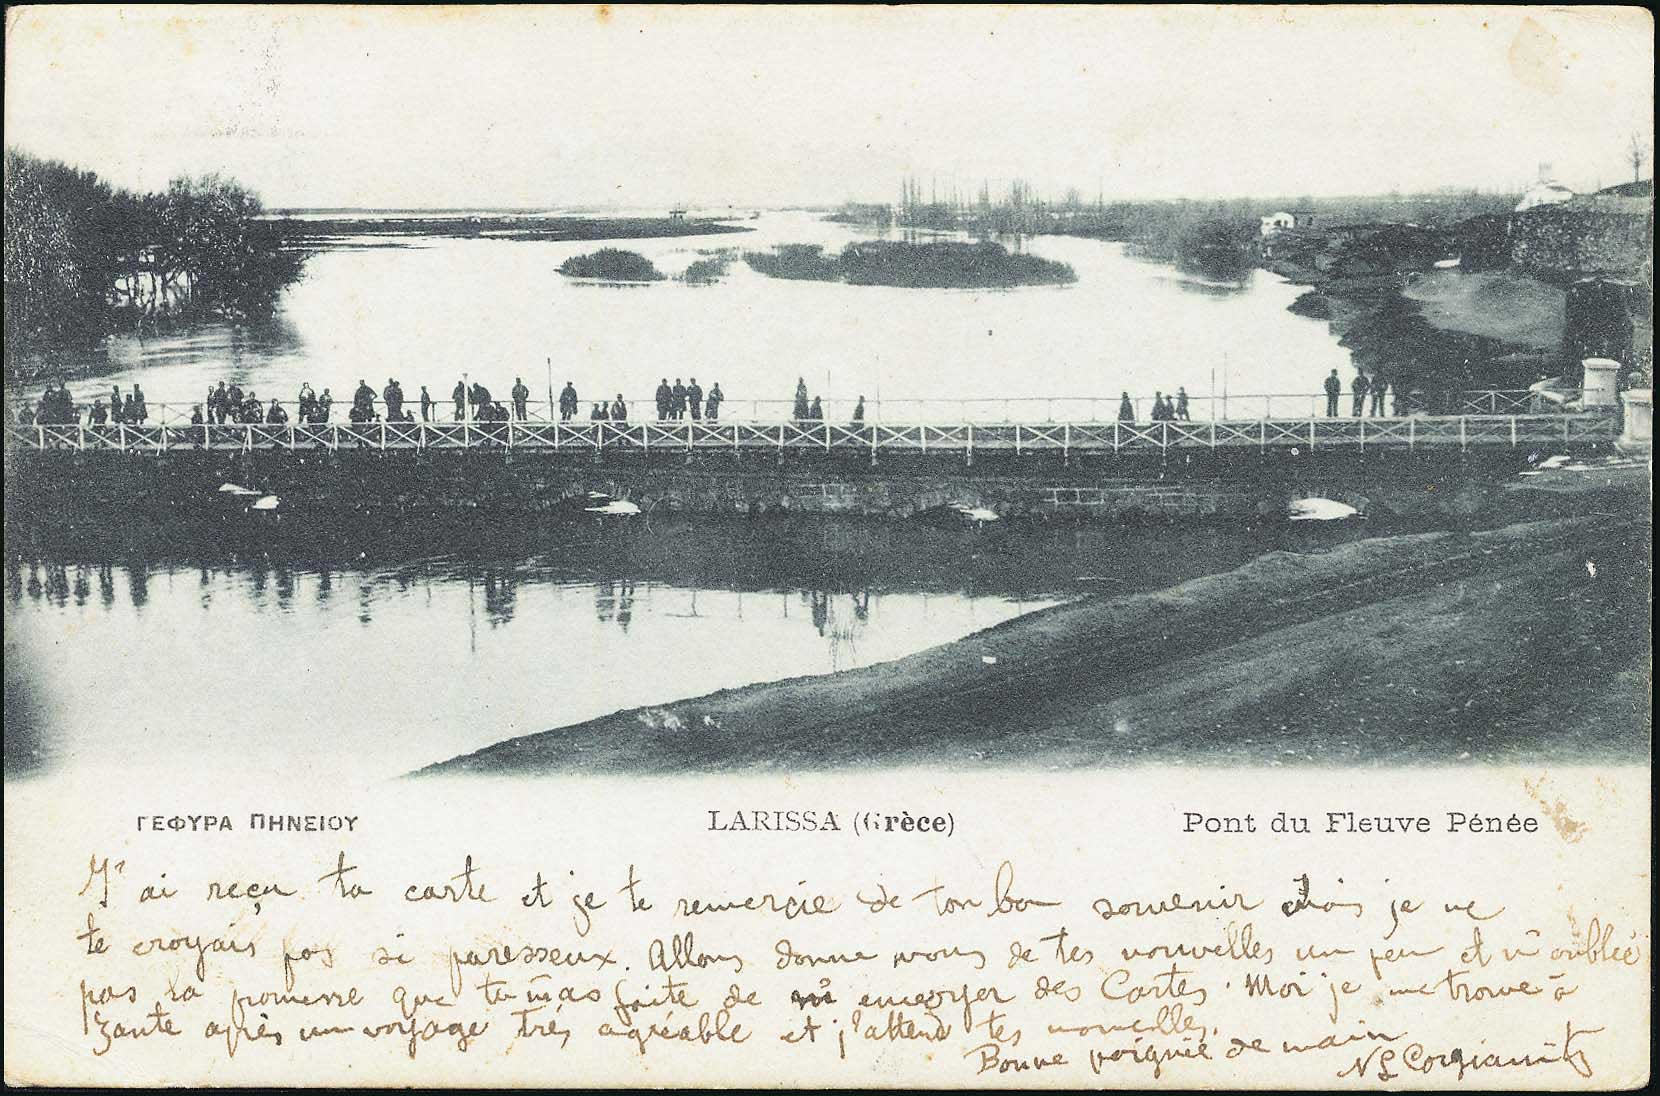 ΓΕΦΥΡΑ ΠΗΝΕΙΟΥ
LARISSA (Grèce)
Pont du Fleuve Pénée
J'ai reçu ta carte et je te remerçie de ton bon souvenir Mais je ne
te croyais pas si paresseux. Allons donne nous de tes nouvelles un peu et n'oublie
pas la promesse que tu m'as faite de m' envoyer des Cartes. Moi je me trouve à
Zante après un voyage très agréable et j'attend tes nouvelles.
Bonne poignée de main